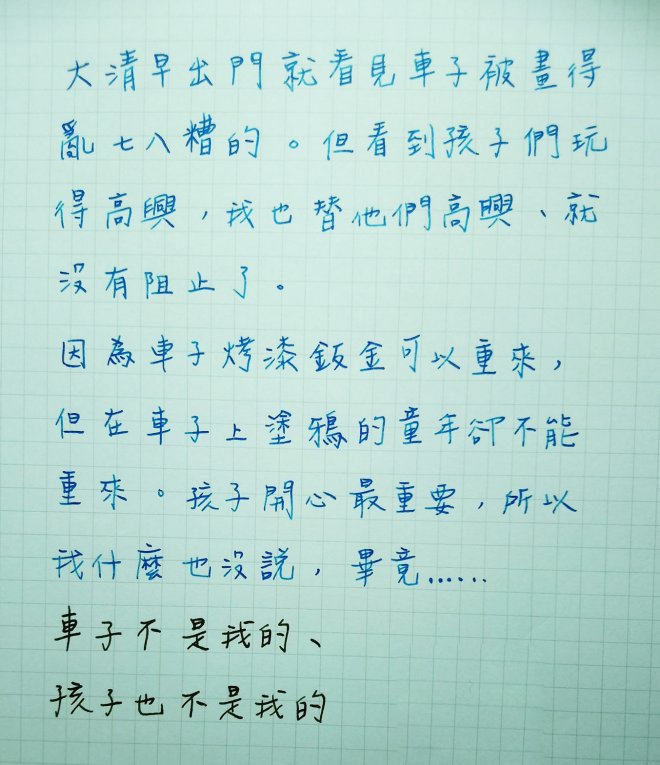 大清早出門就看見車子被畫得
亂七八糟的。但看到孩子們玩
得高興，我也替他們高興、就
沒有阻止了。
因為車子烤漆鈑金可以重來，
但在車子上塗鴉的童年卻不能
重來。孩子開心最重要，所以
我什麼也沒說，畢竟……
車子不是我的、
孩子也不是我的